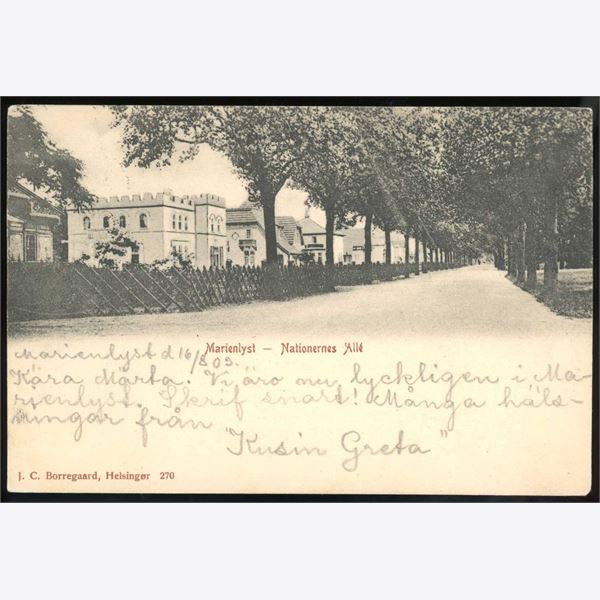 Marienlyst — Nationernes Allé
Marienlyst d 16/8 03.
Kära Märta. Vi äro nu lyckligen i Ma-
rienlyst. Skrif snart! Många häls-
ningar från
"Kusin Greta"
J. C. Borregaard, Helsingør 270